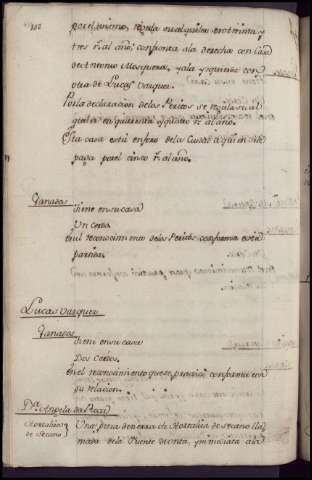 por el mismo, regula su alquiler en treinta y
tres rs. al año, confronta a la derecha con Casa
de Antonio Mosquera, y a la Yzquierda con
otra de Lucas Vazquez
Por la declaracion de los Peritos se regula su al
quiler en quarenta y quatro rs. al año.
Esta casa está
paga por el cinco rs. al año.
Ganados
Tiene en su casa
Un Cerdo
En el reconocimiento de los Peritos conforma esta
partida
Lucas Vazquez
Ganados
Tiene en su casa
Dos Cerdos.
En el reconocimiento que se practicó conforma con
su relacion.
Da. Angela da
Hortaliza
de secano
Una pieza de tierra de Hortaliza de secano lla
mada de la Puente de onta, y inmediata a la